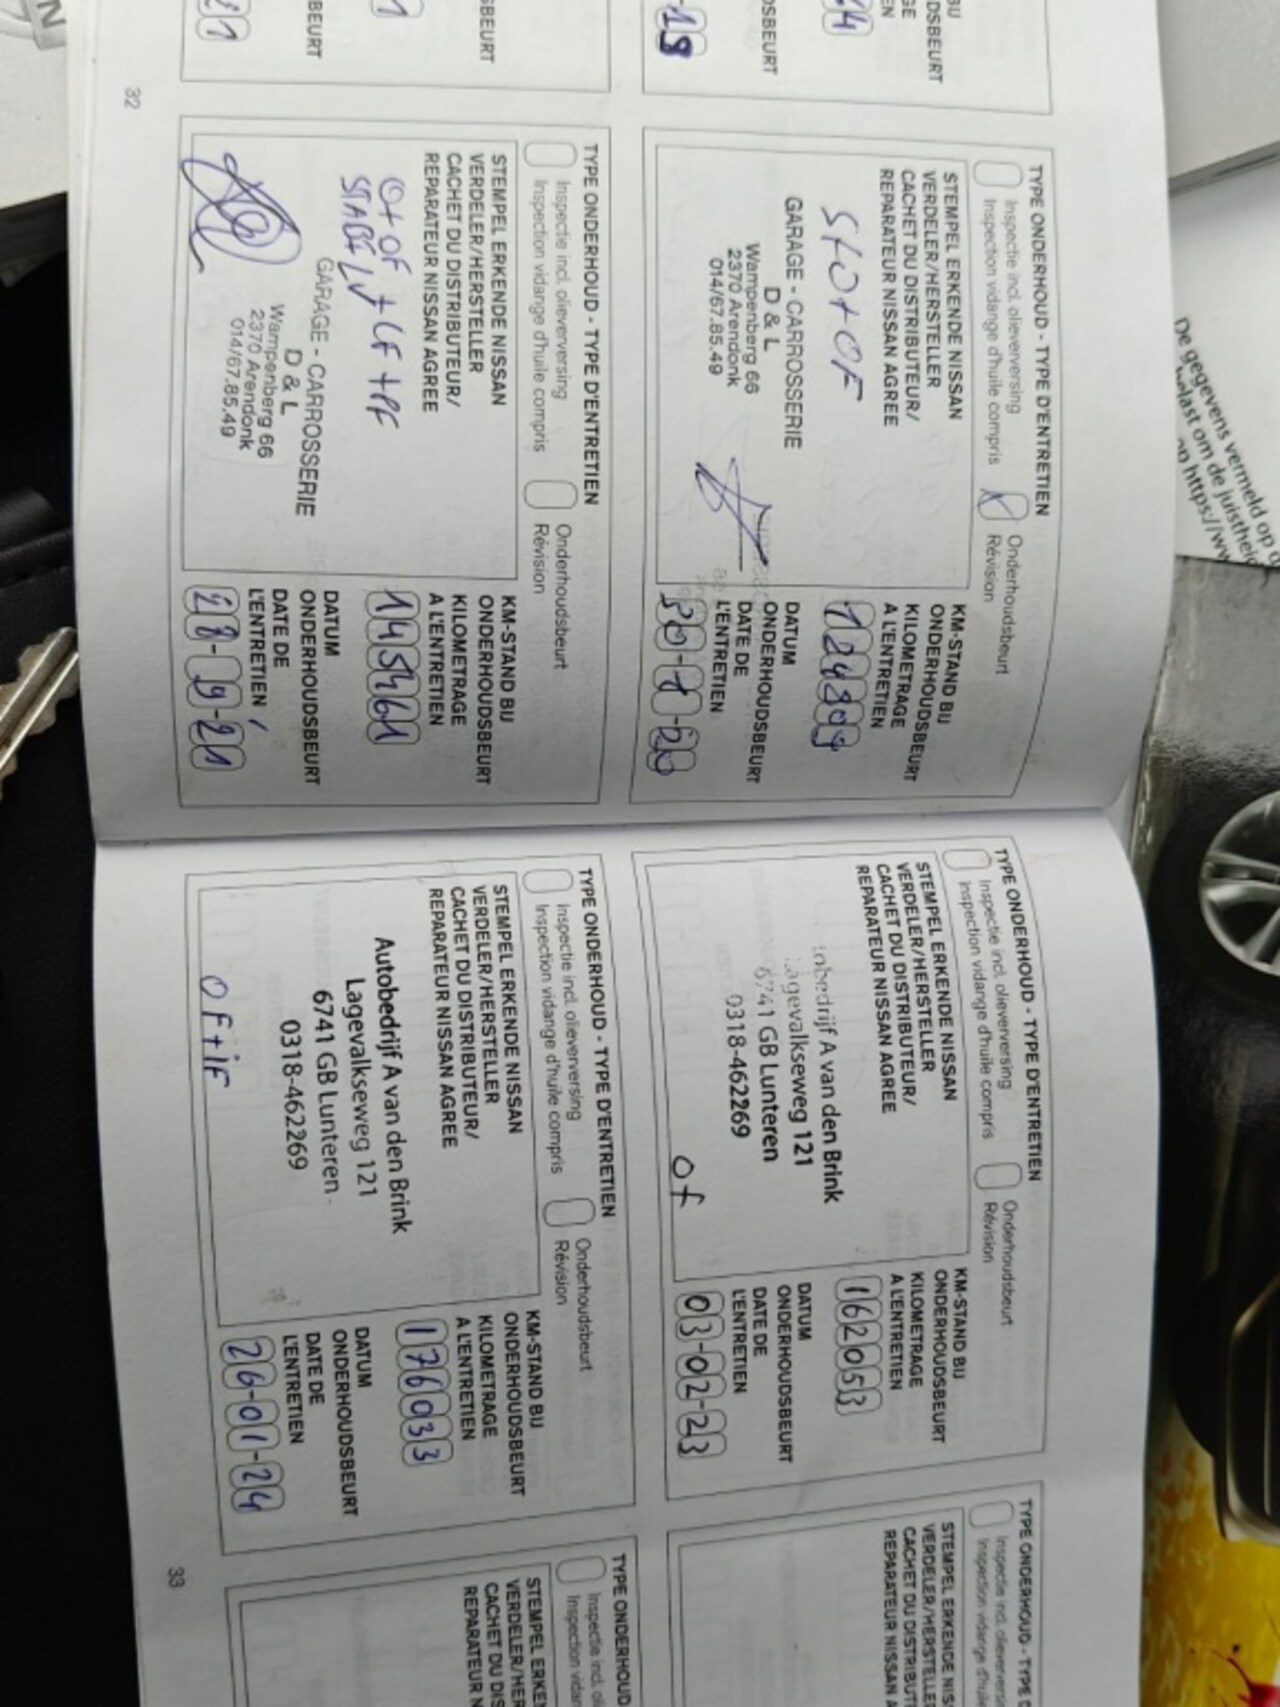 BU
DSBEURT
GE
EN
64
DSBEURT
-19
SBEURT
1
BEURT
21
TYPE ONDERHOUD - TYPE D'ENTRETIEN
Inspectie incl. olieverversing
Inspection vidange d'huile compris
X
Onderhoudsbeurt
Révision
STEMPEL ERKENDE NISSAN
VERDELER/HERSTELLER
CACHET DU DISTRIBUTEUR/
REPARATEUR NISSAN AGREE
GARAGE - CARROSSERIE
D & L
Wampenberg 66
2370 Arendonk
014/67.85.49
KM-STAND BIJ
ONDERHOUDSBEURT
KILOMETRAGE
A L'ENTRETIEN
DATUM
ONDERHOUDSBEURT
DATE DE
L'ENTRETIEN
TYPE ONDERHOUD - TYPE D'ENTRETIEN
Inspectie incl. olieverversing
Inspection vidange d'huile compris
Onderhoudsbeurt
Révision
STEMPEL ERKENDE NISSAN
VERDELER/HERSTELLER
CACHET DU DISTRIBUTEUR/
REPARATEUR NISSAN AGREE
O+OF+LF+PF
GARAGE - CARROSSERIE
D & L
Wampenberg 66
2370 Arendonk
014/67.85.49
KM-STAND BIJ
ONDERHOUDSBEURT
KILOMETRAGE
A L'ENTRETIEN
145461
DATUM
ONDERHOUDSBEURT
DATE DE
L'ENTRETIEN
28-9-21
32
TYPE ONDERHOUD - TYPE D'ENTRETIEN
Inspectie incl. olieverversing
Inspection vidange d'huile compris
Onderhoudsbeurt
Révision
STEMPEL ERKENDE NISSAN
VERDELER/HERSTELLER
CACHET DU DISTRIBUTEUR/
REPARATEUR NISSAN AGREE
tobedrijf A van den Brink
Lagevalkseweg 121
6741 GB Lunteren
0318-462269
Of
KM-STAND BIJ
ONDERHOUDSBEURT
KILOMETRAGE
A L'ENTRETIEN
162053
DATUM
ONDERHOUDSBEURT
DATE DE
L'ENTRETIEN
03-02-23
TYPE ONDERHOUD - TYPE D'ENTRETIEN
Inspectie incl. olieverversing
Inspection vidange d'huile compris
Onderhoudsbeurt
Révision
STEMPEL ERKENDE NISSAN
VERDELER/HERSTELLER
CACHET DU DISTRIBUTEUR/
REPARATEUR NISSAN AGREE
Autobedrijf A van den Brink
Lagevalkseweg 121
6741 GB Lunteren
0318-462269
OF+iF
KM-STAND BIJ
ONDERHOUDSBEURT
KILOMETRAGE
A L'ENTRETIEN
176033
DATUM
ONDERHOUDSBEURT
DATE DE
L'ENTRETIEN
26-01-24
33
TYPE ONDERHOUD - TYPE D
Inspectie incl. oliever
Inspection vidange d'huile
STEMPEL ERKENDE NIS
VERDELER/HERSTELLE
CACHET DU DISTRIBUT
REPARATEUR NISSAN A
TYPE ONDERHOUD
Inspectie incl. oli
Inspection vidan
STEMPEL ERKEN
VERDELER/HER
CACHET DU DIS
REPARATEUR N
De gegevens vermeld op
last om de juisthei
op https://ww